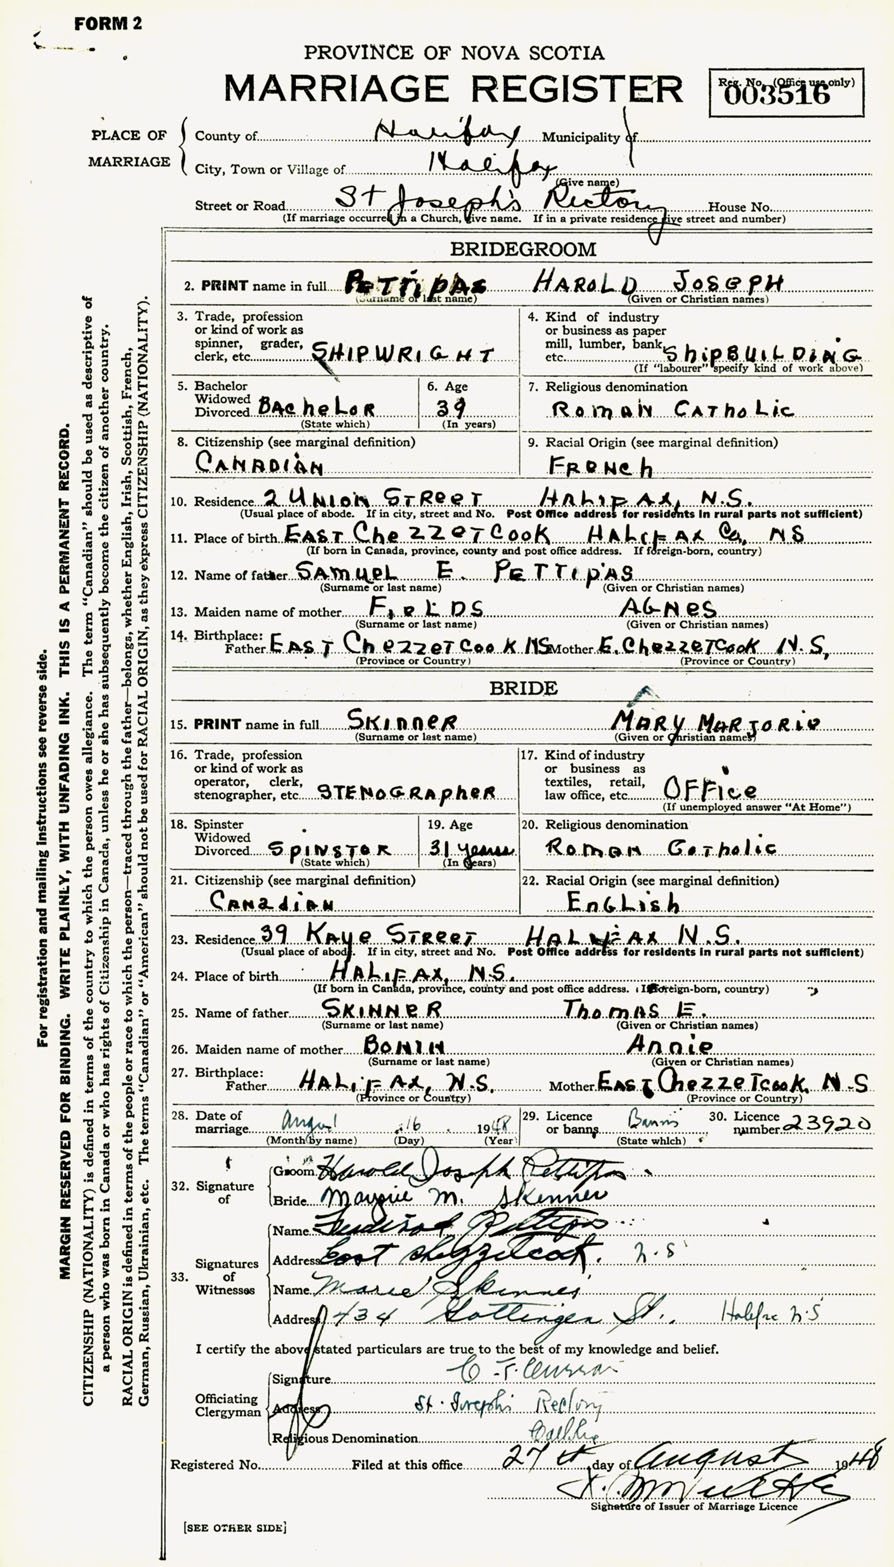 FORM 2
PROVINCE OF NOVA SCOTIA
MARRIAGE REGISTER
Reg. No. (Office use only)
003516
PLACE OF MARRIAGE
County of Halifax Municipality of
City, Town or Village of Halifax
(Give name)
Street or Road St Joseph's Rectory House No.
(If marriage occurred in a Church, give name. If in a private residence give street and number)
BRIDEGROOM
2. PRINT name in full PETTIPAS HAROLD JOSEPH
(Surname or last name) (Given or Christian names)
3. Trade, profession
or kind of work as
spinner, grader,
clerk, etc. SHIPWRIGHT
4. Kind of industry
or business as paper
mill, lumber, bank,
etc. ShipBUILDING
(If "labourer" specify kind of work above)
5. Bachelor
Widowed
Divorced BACheLOR
(State which)
6. Age
39
(In years)
7. Religious denomination
ROMAN CATHOLIC
8. Citizenship (see marginal definition)
CANADIAN
9. Racial Origin (see marginal definition)
FRENCh
10. Residence 2 UNION STREET HALIFAX, N.S.
(Usual place of abode. If in city, street and No. Post Office address for residents in rural parts not sufficient)
11. Place of birth EAST CheZZETCOOK HALIFAX Co, NS
(If born in Canada, province, county and post office address. If foreign-born, country)
12. Name of father SAMUEL E. PETTIPAS
(Surname or last name) (Given or Christian names)
13. Maiden name of mother FiELDS AGNES
(Surname or last name) (Given or Christian names)
14. Birthplace:
Father EAST ChezzETCOOK NS Mother E. ChezzETCOOK N.S,
(Province or Country) (Province or Country)
BRIDE
15. PRINT name in full SKINNER MARY MARJORIE
(Surname or last name) (Given or Christian names)
16. Trade, profession
or kind of work as
operator, clerk,
stenographer, etc. STENOGRAPHER
17. Kind of industry
or business as
textiles, retail,
law office, etc. OFFice
(If unemployed answer "At Home")
18. Spinster
Widowed
Divorced SPINSTOR
(State which)
19. Age
31 years
(In years)
20. Religious denomination
ROMAN CATHOLIC
21. Citizenship (see marginal definition)
CANADIAN
22. Racial Origin (see marginal definition)
ENGLISH
23. Residence 39 KAYE STREET HALIFAX N.S.
(Usual place of abode. If in city, street and No. Post Office address for residents in rural parts not sufficient)
24. Place of birth HALIFAX, N.S.
(If born in Canada, province, county and post office address. If foreign-born, country)
25. Name of father SKINNER Thomas E.
(Surname or last name) (Given or Christian names)
26. Maiden name of mother BONIN Annie
(Surname or last name) (Given or Christian names)
27. Birthplace:
Father HALIFAX, N.S. Mother EAST Chezzetcook N.S
(Province or Country) (Province or Country)
28. Date of
marriage August 16 1948
(Month by name) (Day) (Year)
29. Licence
or banns Banns
(State which)
30. Licence
number 23920
32. Signature of
Groom Harold Joseph Pettipas
Bride Marjorie M. Skinner
33. Signatures of Witnesses
Name Pettipas
Address East Chezzetcook. N.S
Name Marie Skinner
Address 434 Gottingen St., Halifax N.S
I certify the above stated particulars are true to the best of my knowledge and belief.
Officiating Clergyman
Signature C. F. Curran
Address St. Joseph's Rectory
Religious Denomination Catholic
Registered No. Filed at this office 27th day of August 1948
Signature of Issuer of Marriage Licence
[SEE OTHER SIDE]
For registration and mailing instructions see reverse side.
MARGIN RESERVED FOR BINDING. WRITE PLAINLY, WITH UNFADING INK. THIS IS A PERMANENT RECORD.
CITIZENSHIP (NATIONALITY) is defined in terms of the country to which the person owes allegiance. The term "Canadian" should be used as descriptive of
a person who was born in Canada or who has rights of Citizenship in Canada, unless he or she has subsequently become the citizen of another country.
RACIAL ORIGIN is defined in terms of the people or race to which the person—traced through the father—belongs, whether English, Irish, Scottish, French,
German, Russian, Ukrainian, etc. The terms "Canadian" or "American" should not be used for RACIAL ORIGIN, as they express CITIZENSHIP (NATIONALITY).